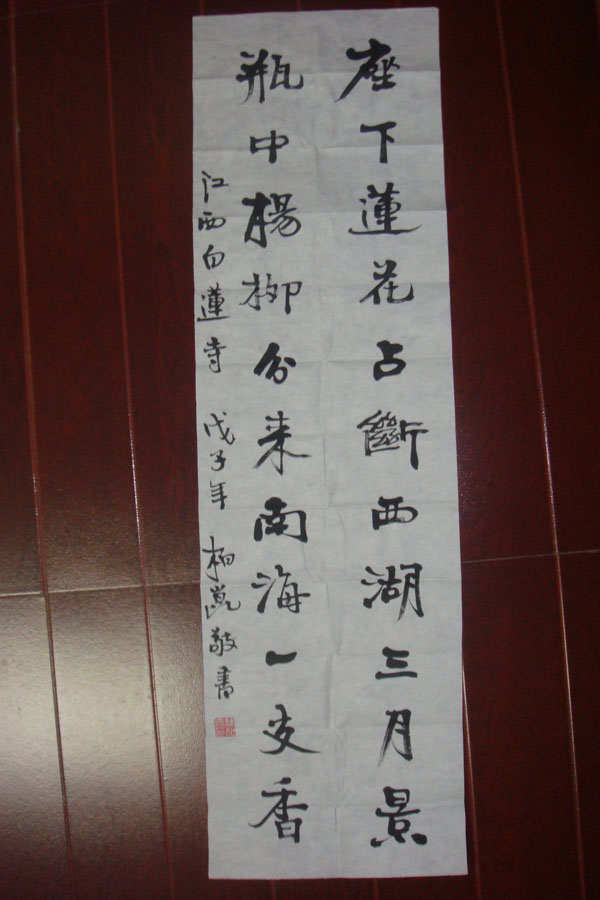 座下蓮花占斷西湖三月景
瓶中楊柳分来南海一支香
江西白蓮寺 戊子年 柏嵗敬書